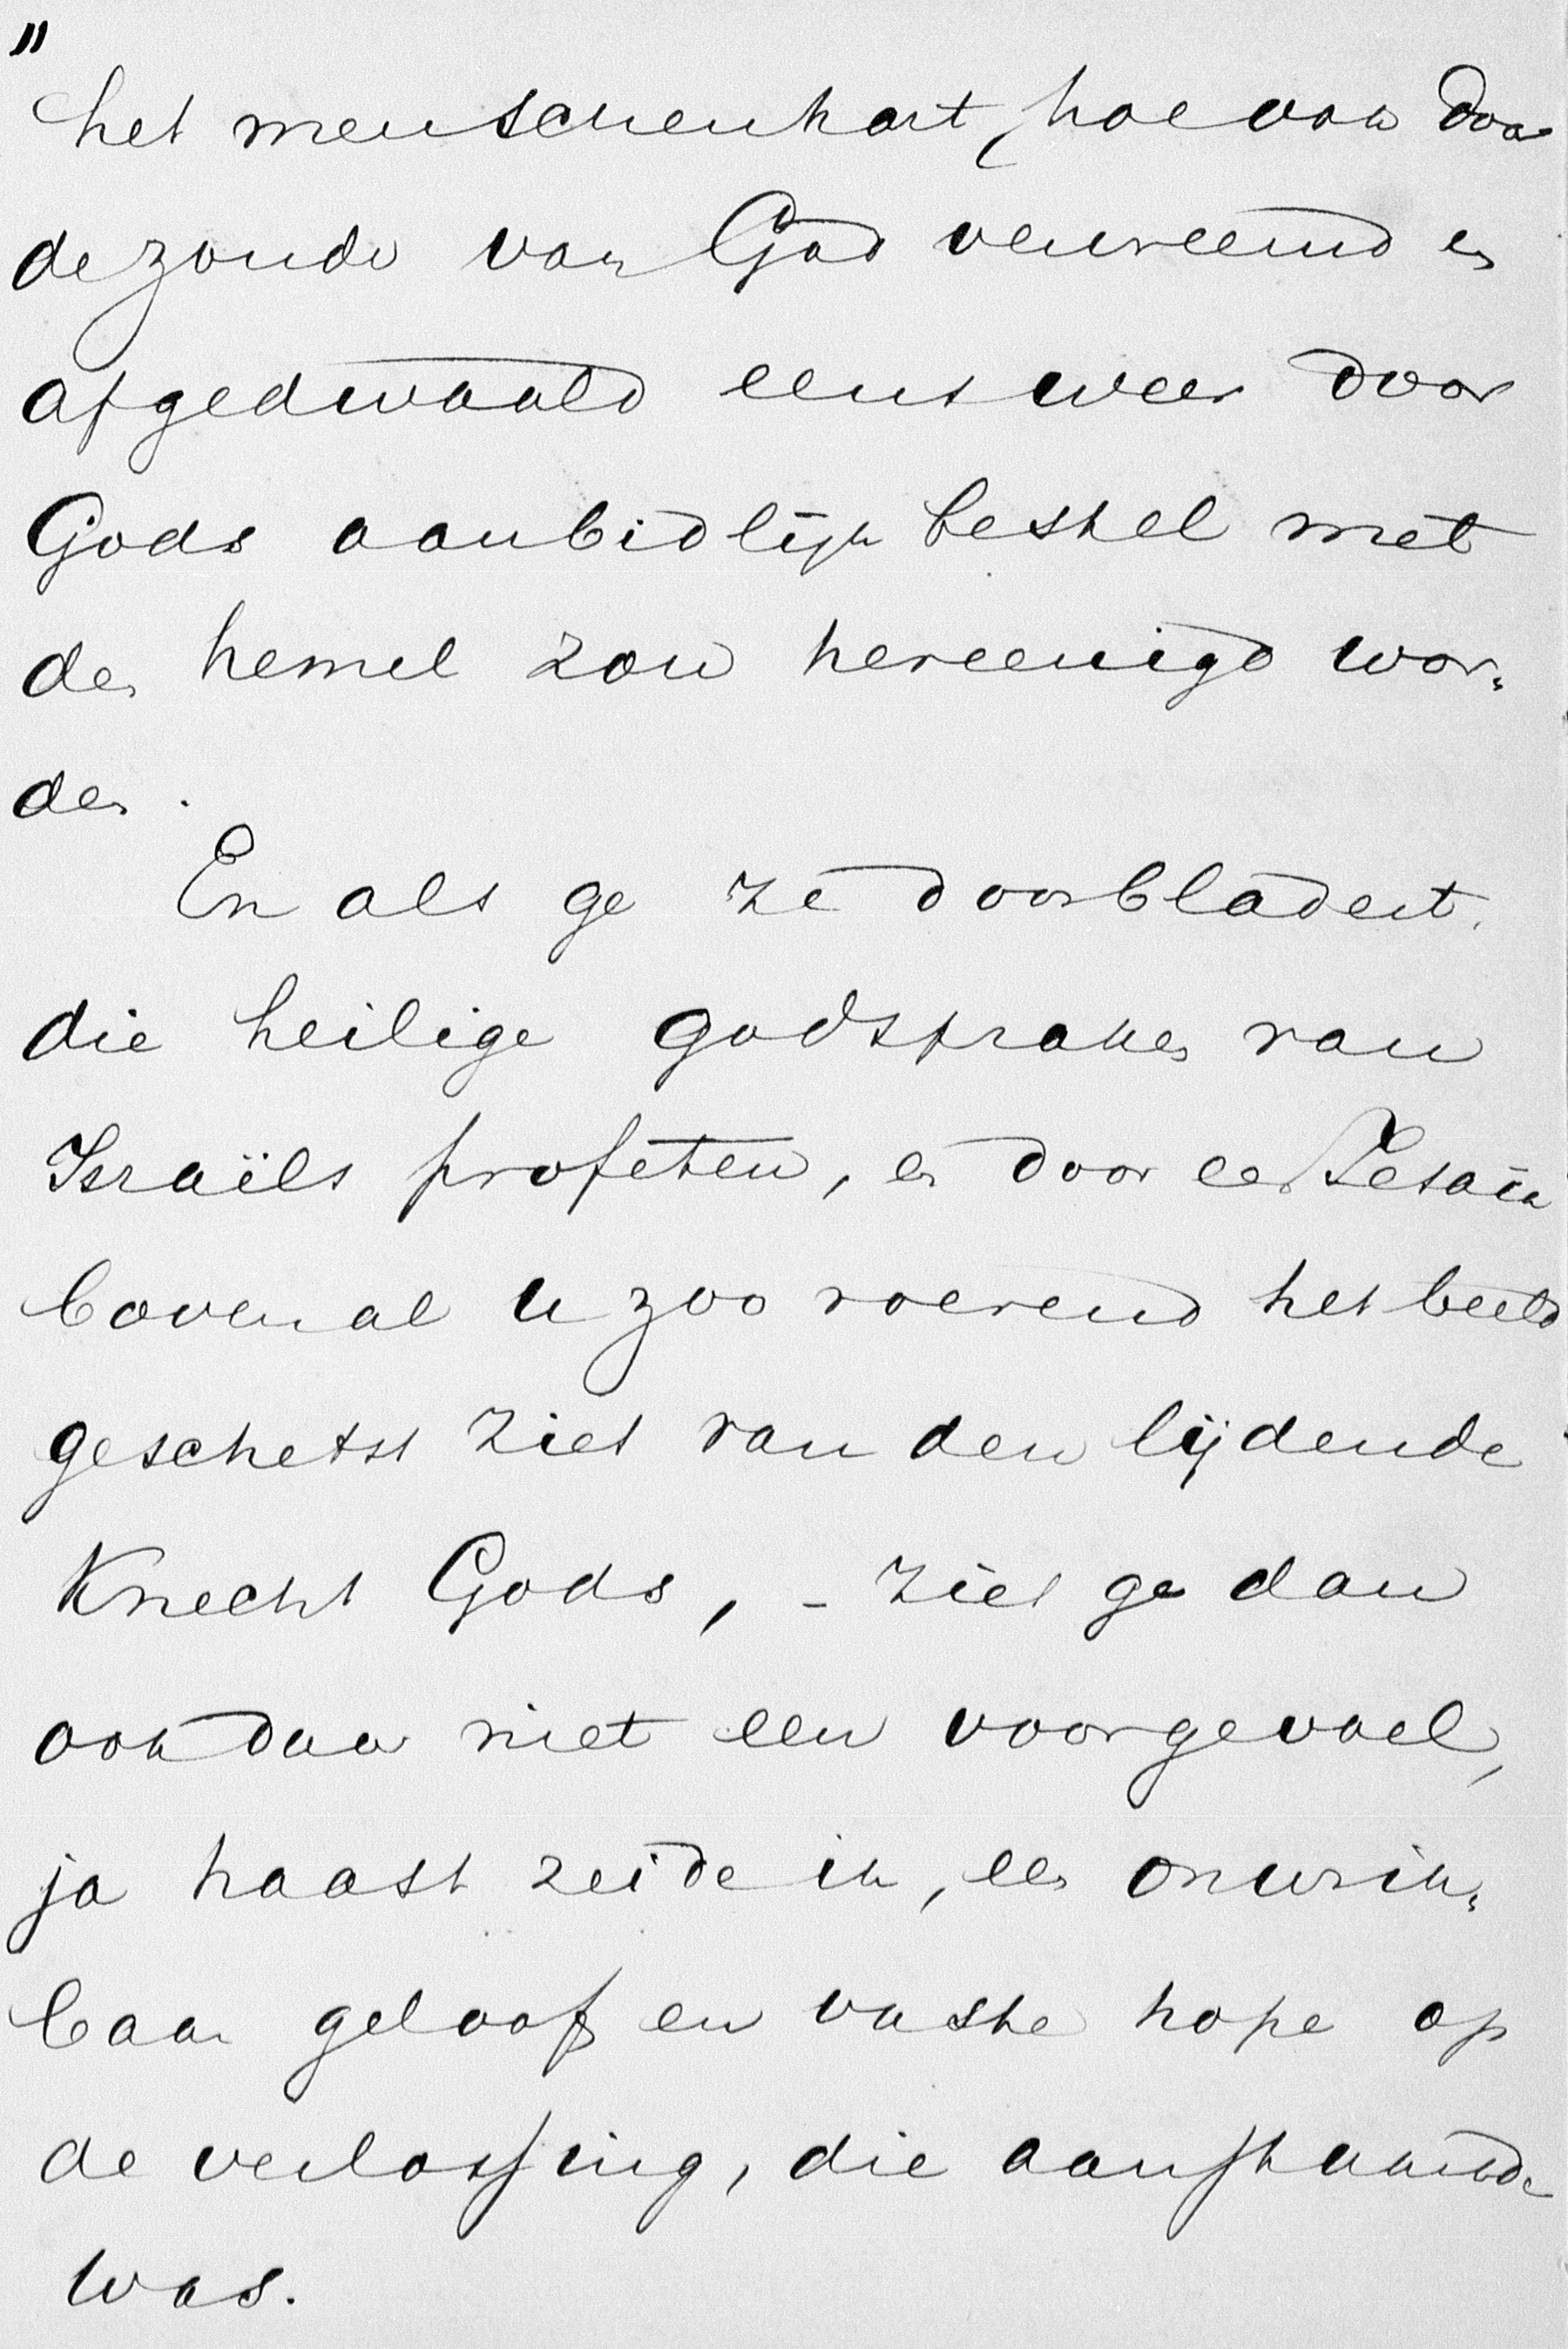 "
het menschenhart, hoe ook door
de zonde van God vervreemd en
afgedwaald eens weer door
Gods aanbidlijk bestel met
den hemel zou hereenigd wor-
den.
En als ge ze doorbladert,
die heilige godspraken van
Israëls profeten, en door een Jesaia
bovenal u zoo roerend het beeld
geschetst ziet van den lijdende
Knecht Gods, - ziet ge dan
ook daar niet een voorgevoel,
ja haast zeide ik, een onwrik-
baar geloof en vaste hope op
de verlossing, die aanstaande
was.